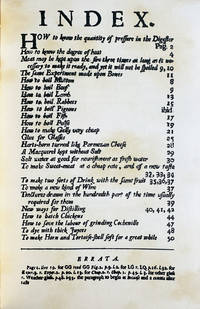 INDEX.
HOW to know the quantity of pressure in the Digester
Pag. 2
How to know the degree of heat 4
Meat may be kept upon the fire three times as long as is ne-
cessary to make it ready, and yet it will not be spoiled 9, 10
The same Experiment made upon Bones 11
How to boil Mutton 8
How to boil Beef 9
How to boil Lamb 12
How to boil Rabbets 15
How to boil Pigeons ibid.
How to boil Fish 17
How to boil Pulse 19
How to make Gelly very cheap 21
Glue for Glasses 25
Harts-horn turned like Parmesan Cheese 28
A Mackquerel kept without Salt 29
Salt water as good for nourishment as fresh water 30
To make Sweet-meat at a cheap rate, and of a new taste
32, 33, 34
To make two sorts of Drink with the same fruit 35, 36, 37
To make a new kind of Wine 37
Tinctures drawn in the hundredth part of the time usually
required for them 39
New ways for Distilling 40, 41, 42
How to hatch Chickens 44
How to save the labour of grinding Cochenille 47
To dye with thick Juyces 48
To make Horn and Tortoise-shell soft for a great while 50
ERRATA.